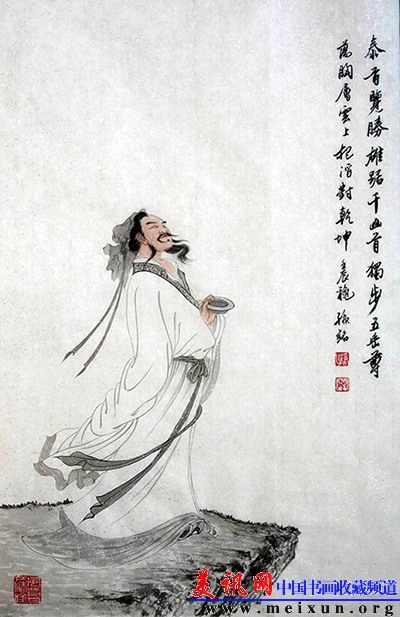 泰覽勝雄踞千山首獨步五岳尊
蕩胸層雲上把酒對乾坤
美讯网 中国书画收藏频道
www.meixun.org